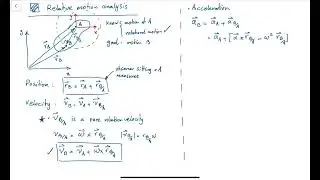 Relative motion analysis
known: motion of A
rotational motion
goal: motion B
Position: r⃗_B = r⃗_A + r⃗_B/A
observer sitting @ A measures
Velocity: v⃗_B = v⃗_A + v⃗_B/A
* v⃗_B/A is a pure rotation velocity
v_B/A = ω⃗ × r⃗_B/A |v⃗_B/A| = r_B/A ω
v⃗_B = v⃗_A + ω⃗ × r⃗_B/A
• Acceleration
a⃗_B = a⃗_A + a⃗_B/A
= a⃗_A + [α⃗ × r⃗_B/A - ω² r⃗_B/A]